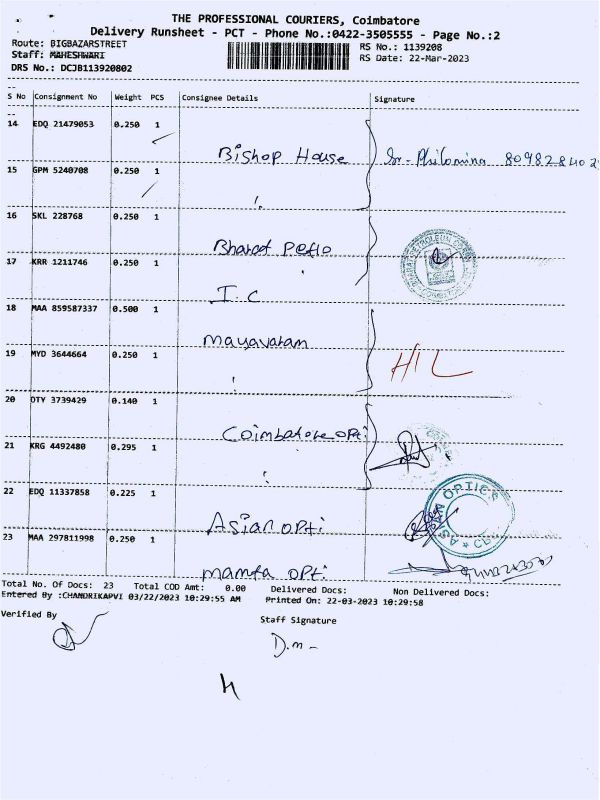 THE PROFESSIONAL COURIERS, Coimbatore
Delivery Runsheet - PCT - Phone No.:0422-3505555 - Page No.:2
Route: BIGBAZARSTREET
RS No.: 1139208
Staff: MAHESHWARI
RS Date: 22-Mar-2023
DRS No.: DCJB113920802
S No Consignment No Weight PCS Consignee Details Signature
14 EDQ 21479053 0.250 1
Bishop House Sr-Philomina
15 GPM 5240708 0.250 1
16 SKL 228768 0.250 1
Bharat Petro
17 KRR 1211746 0.250 1
I.C
18 MAA 859587337 0.500 1
Mayavaram
19 MYD 3644664 0.250 1
HIL
20 OTY 3739429 0.140 1
Coimbatore opti
21 KRG 4492480 0.295 1
22 EDQ 11337858 0.225 1
Asian opti
ASIAN OPTICA
23 MAA 297811998 0.250 1
mamta opti
Total No. Of Docs: 23 Total COD Amt: 0.00 Delivered Docs: Non Delivered Docs:
Entered By :CHANDRIKAPVI 03/22/2023 10:29:55 AM Printed On: 22-03-2023 10:29:58
Verified By
Staff Signature
D.m-